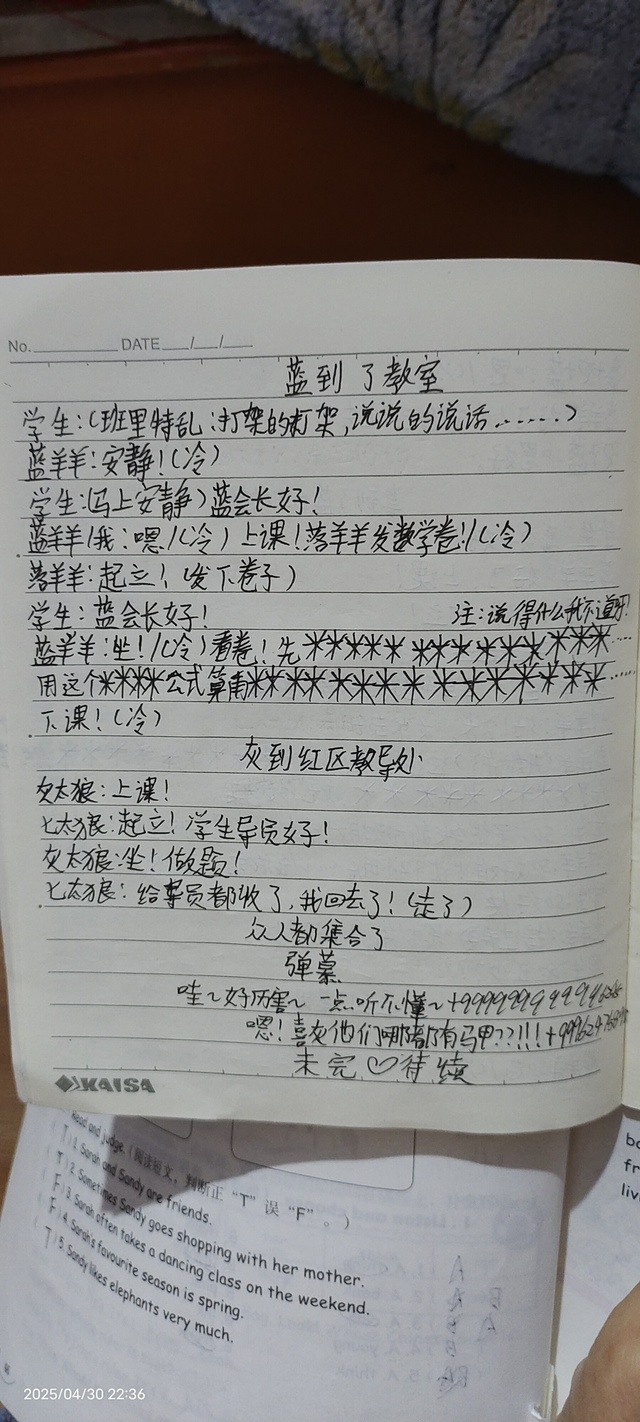 No. DATE / /
蓝到了教室
学生:(班里特乱:打架的打架,说说的说话......)
蓝羊羊:安静!(冷)
学生:(马上安静)蓝会长好!
蓝羊羊/我:嗯!(冷)上课!落羊羊发数学卷!/(冷)
落羊羊:起立!(发下卷子)
学生:蓝会长好!
注:说得什么我不道呀!
蓝羊羊:坐!/(冷)看卷!先***** ***** ***......
用这个****公式算 ......
下课!(冷)
灰到红区教导处
灰太狼:上课!
七太狼:起立!学生导员好!
灰太狼:坐!做题!
七太狼:给导员都收了,我回去了!(走了)
众人都集合了
弹慕
哇~好厉害~ 一点听不懂~+999999
嗯!喜灰他们哪都有马甲??!!!+99962
未完♡待续
KAISA
Read and judge. (阅读短文,判断正“T”误“F”。)
(T)1. Sarah and Sandy are friends.
(T)2. Sometimes Sandy goes shopping with her mother.
(F)3. Sarah often takes a dancing class on the weekend.
(F)4. Sarah's favourite season is spring.
(T)5. Sandy likes elephants very much.
2025/04/30 22:36